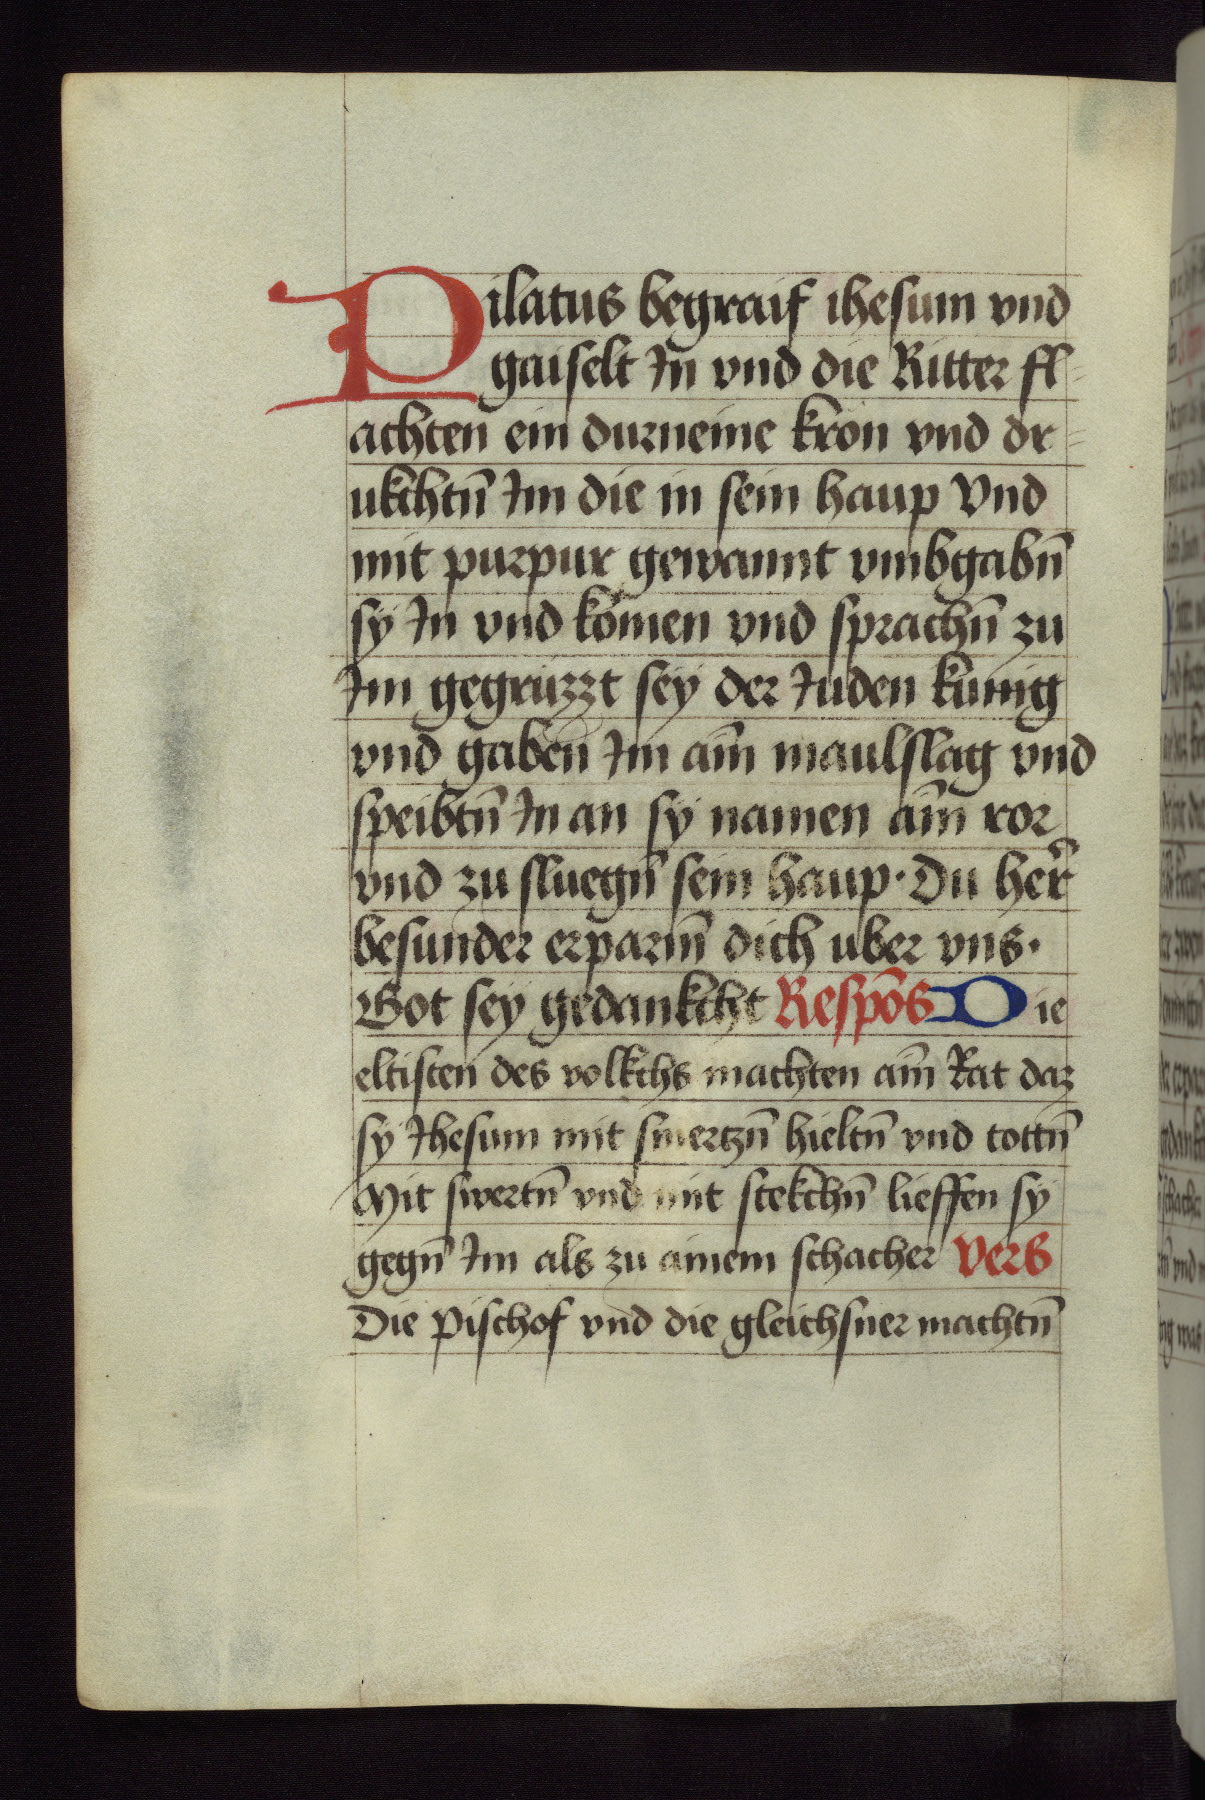 Pilatus begraif ihesum vnd
gaiselt In vnd die Ritter fl=
achten ein durneine kron vnd dr=
ukchtn̄ Im die in sein haup Vnd
mit purpur gewannt vmbgabn̄
sy In vnd komen vnd sprachn̄ zu
Im gegrüzzt sey der Juden kunig
vnd gaben Im aim̄ maulslag vnd
speibtn̄ In an sy namen aim̄ ror
vnd zu sluegn̄ sein haup · Du her̄
besunder erparm̄ dich uber vns ·
Got sey gedankcht Respōs Die
eltisten des volkchs machten aim̄ Rat daz
sy Jhesum mit smertzn̄ hieltn̄ vnd tottn̄
Mit swertn̄ vnd mit stekchn̄ lieffen sy
gegn̄ Im als zu ainem schacher Vers
Die pischof vnd die gleichsner machtn̄